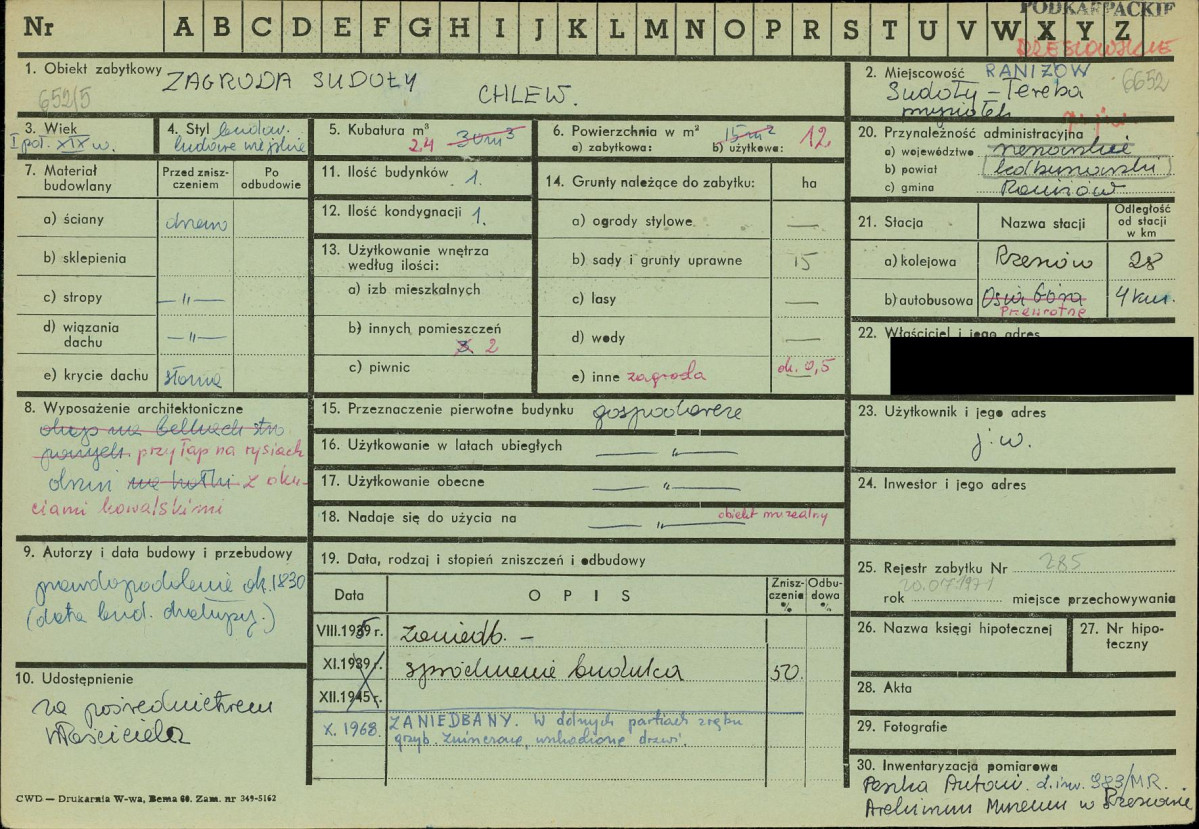 PODKARPACKIE
Nr A B C D E F G H I J K L M N O P R S T U V W X Y Z
RZESZOWSKIE
1. Obiekt zabytkowy ZAGRODA SUDOŁY
652/5 CHLEW.
2. Miejscowość RANIŻÓW
6652
Sudoły – Tereba
przysiółek
3. Wiek
I poł. XIX w.
4. Styl budow.
ludowe wiejskie
5. Kubatura m³
24 30 m³
6. Powierzchnia w m² 15 m² 12
a) zabytkowa: b) użytkowa:
7. Materiał budowlany
Przed zniszczeniem
Po odbudowie
a) ściany drewno
b) sklepienia
c) stropy —„—
d) wiązania dachu —„—
e) krycie dachu słoma
8. Wyposażenie architektoniczne
przyłap na rysiach
z oku-
ciami kowalskimi
9. Autorzy i data budowy i przebudowy
prawdopodobnie ok. 1830
(data bud. chałupy.)
10. Udostępnienie
za pośrednictwem
właściciela
11. Ilość budynków 1.
12. Ilość kondygnacji 1.
13. Użytkowanie wnętrza według ilości:
a) izb mieszkalnych
b) innych pomieszczeń
3 2
c) piwnic
14. Grunty należące do zabytku: ha
a) ogrody stylowe —
b) sady i grunty uprawne 15
c) lasy —
d) wody —
e) inne zagroda ok. 0,5
15. Przeznaczenie pierwotne budynku gospodarcze
16. Użytkowanie w latach ubiegłych —„—
17. Użytkowanie obecne —„—
18. Nadaje się do użycia na —„— obiekt muzealny
19. Data, rodzaj i stopień zniszczeń i odbudowy
Data OPIS Zniszczenie % Odbudowa %
VIII.1939 r. zaniedb. —
XI.1939 r. spróchnienie budulca 50.
XII.1945 r.
X. 1968. ZANIEDBANY. W dolnych partiach zrębu
grzyb. Zniszczone, uszkodzone drzwi.
20. Przynależność administracyjna
a) województwo rzeszowskie
b) powiat kolbuszowski
c) gmina Raniżów
21. Stacja Nazwa stacji Odległość od stacji w km
a) kolejowa Rzeszów 28
b) autobusowa Osia Góra 4 km.
Przewrotne
22. Właściciel i jego adres
23. Użytkownik i jego adres
j. w.
24. Inwestor i jego adres
25. Rejestr zabytku Nr 285
rok 20.07.1971 miejsce przechowywania
26. Nazwa księgi hipotecznej
27. Nr hipoteczny
28. Akta
29. Fotografie
30. Inwentaryzacja pomiarowa
Antoni. d. inw. 383/MR.
Archiwum Muzeum w Rzeszowie
CWD — Drukarnia W-wa, Bema 60. Zam. nr 349-5162